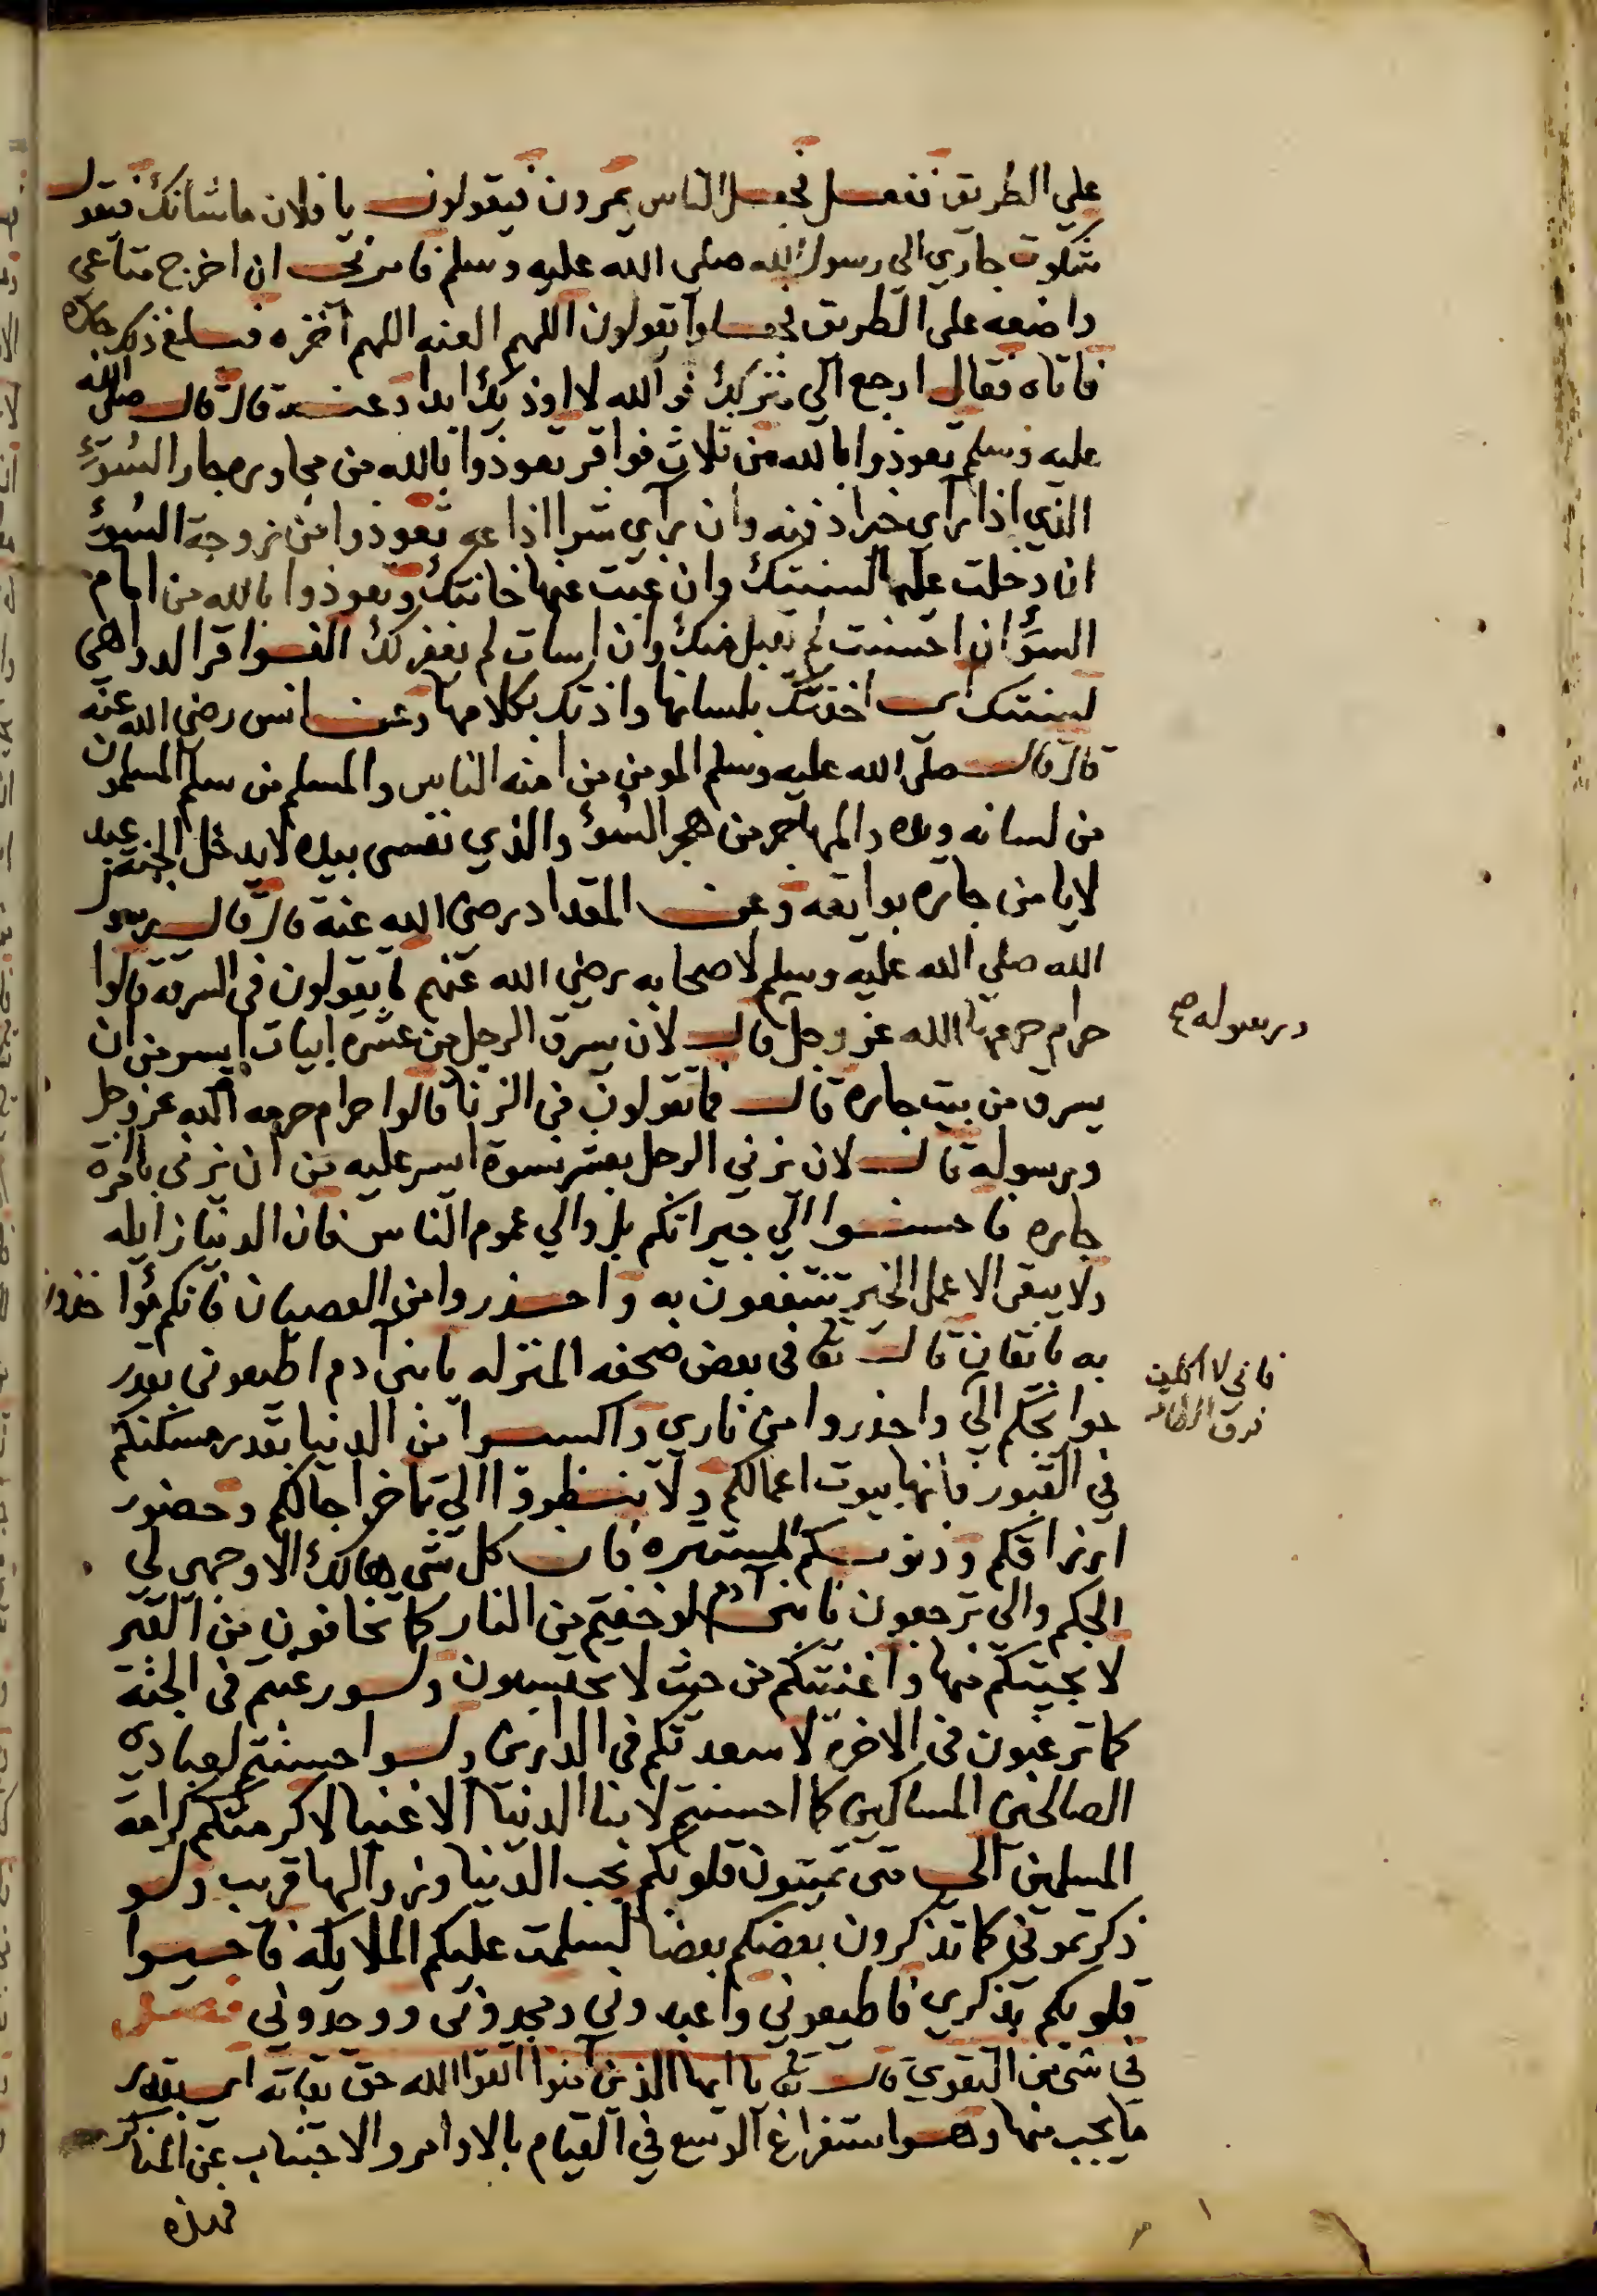 علي الطريق ففعل فجعل الناس يمرون فيقولون يا فلان ما شانك فيقول
شكوت جاري الى رسول الله صلي الله عليه وسلم فامرني ان اخرج متاعي
واضعه على الطريق فجعلوا يقولون اللهم العنه اللهم اخزه فبلغ ذلك جاره
فاتاه فقال ارجع الي منزلك فوالله لا اوذيك ابدا وعنه قال قال صلى الله
عليه وسلم تعوذوا بالله من ثلاث فواقر تعوذوا بالله من مجاورة جار السوء
الذي اذا راى خيرا دفنه وان راي شرا اذاعه تعوذوا من زوجة السوء
ان دخلت عليها لسنتك وان غبت عنها خانتك وتعوذوا بالله من امام
السوء ان احسنت لم يقبل منك وان اسات لم يغفر لك الفواقر الدواهي
لسنتك اي اخذتك بلسانها واذتك بكلامها وعن انس رضى الله عنه
قال قال صلى الله عليه وسلم المومن من امنه الناس والمسلم من سلم المسلمون
من لسانه ويده والمهاجر من هجر السوء والذي نفسى بيده لا يدخل الجنة عبد
لا يامن جاره بوايقه وعن المقداد رضى الله عنه قال قال رسول
الله صلي الله عليه وسلم لاصحابه رضي الله عنهم ما يقولون في السرقة قالوا
حرام حرمها الله عز وجل قال لان يسرق الرجل من عشرة ابيات ايسر من ان
يسرق من بيت جاره قال فما تقولون في الزنا قالوا حرام حرمه الله عز وجل
ورسوله قال لان يزني الرجل بعشر نسوة ايسر عليه من ان يزني بامرة
جاره فاحسنوا الي جيرانكم بل والي عموم الناس فان الدنيا زايله
ولا يبقى الا عمل الخير تنتفعون به واحذروا من العصيان فانكم
به باتقان قال تعا في بعض صحفه المنزله يا بنى ادم اطيعوني بقدر
حوايجكم الي واحذروا من ناري واكسبوا من الدنيا بقدر مسكنكم
في القبور فانها بيوت اعمالكم ولا تنظروا الي تاخر اجالكم وحضور
ارزاقكم وذنوبكم المستتره فان كل شي هالك الا وجهي لي
الحكم والى ترجعون يا بنى آدم لو خفتم من النار كما تخافون من الفقر
لانجيتكم منها واغنيتكم من حيث لا تحتسبون ولو رغبتم في الجنة
كما ترغبون في الاخره لاسعدتكم في الدارين ولو احسنتم لعبادي
الصالحين المساكين كما احسنتم لابنا الدنيا الاغنيا لاكرمتكم كرامة
المسلمين الي متى تميتون قلوبكم بحب الدنيا وزوالها قريب ولو
ذكرتموني كما تذكرون بعضكم بعضا لسلمت عليكم الملايكه فاحيوا
قلوبكم بذكري فاطيعوني واعبدوني ومجدوني ووحدوني فصل
في شي من التقوي قال تعا يا ايها الذين آمنوا اتقوا الله حق تقاته اي بقدر
ما يجب منها وهو استفراغ الوسع في القيام بالاوامر والاجتناب عن المناكر
فهذه
ورسوله صح
فاني لا اكلف
فوق الطاقه